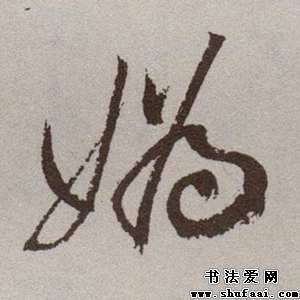 嫣
书法爱网
www.shufaai.com